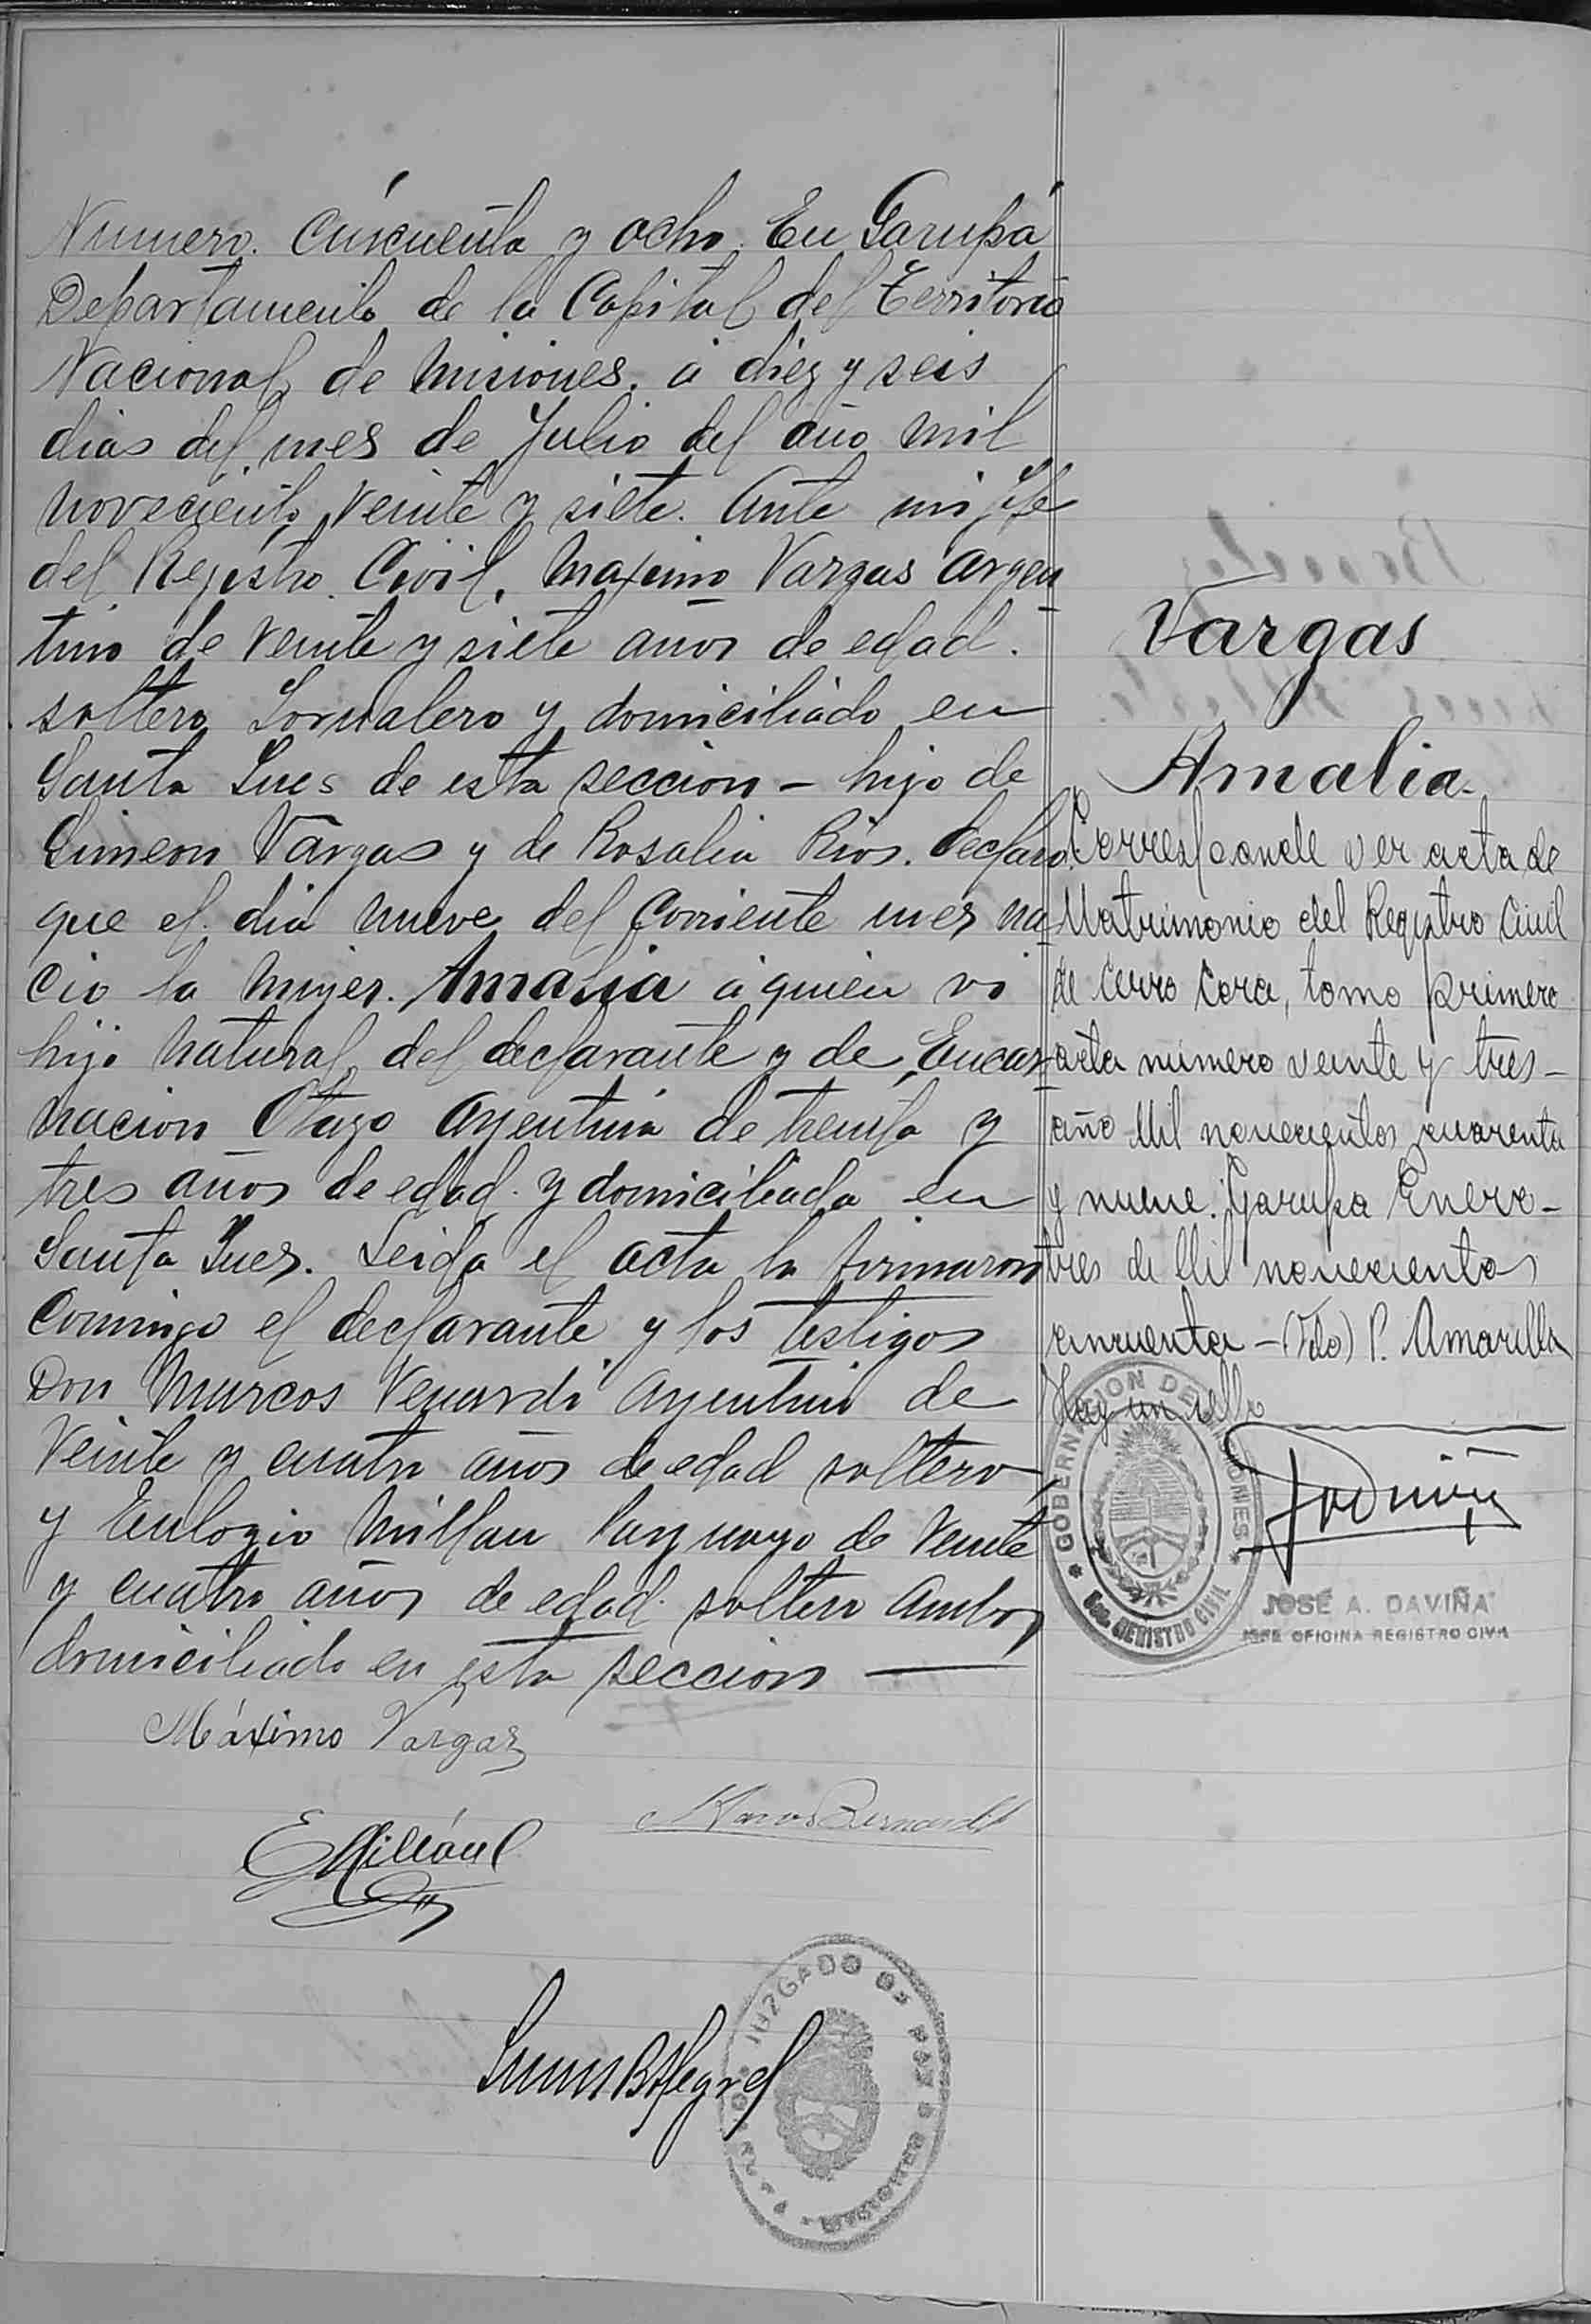 Numero. Cincuenta y ocho. En Garupá
Departamento de la Capital del Territorio
Nacional de Misiones. á diez y seis
dias del mes de Julio del año mil
novecientos veinte y siete. Ante mi jefe
del Registro Civil, Maximo Vargas argen
tino de veinte y siete años de edad.
soltero Jornalero y domiciliado en
Santa Ines de esta seccion - hijo de
Simeon Vargas y de Rosalia Rios. declaro
que el dia nueve del corriente mes na
cio la mujer. Amalia á quien vi
hijo natural del declarante y de Encar
nacion Otazo Argentina de treinta y
tres años de edad. y domiciliada en
Santa Ines. Leida el acta la firmaron
conmigo el declarante y los testigos
Don Marcos Venardi argentino de
veinte y cuatro años de edad soltero
y Eulogio Millan Paraguayo de veinte
y cuatro años de edad. soltero ambos
domiciliado en esta seccion
Máximo Vargas
Marcos Bernardi
E Millán
JUZGADO DE PAZ
Vargas
Amalia.
Corresponde ver acta de
Matrimonio del Registro Civil
de Cerro Cora, tomo primero
acta número veinte y tres -
año Mil novecientos cuarenta
y nueve. Garupa Enero -
tres de Mil novecientos
cincuenta - (Fdo) P. Amarilla
Hay un sello
GOBERNACION DE MISIONES
REGISTRO CIVIL
JOSÉ A. DAVIÑA
JEFE OFICINA REGISTRO CIVIL